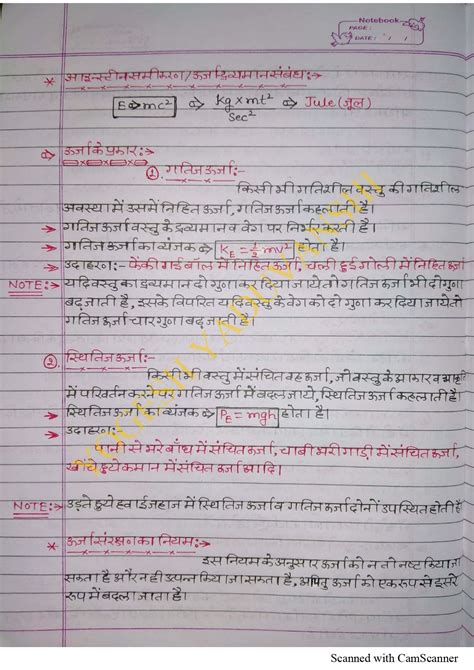 Notebook
PAGE:
DATE: / /
* आइन्स्टीन समीकरण/ऊर्जा द्रव्यमान संबंध:→
E⇒mc² ⇒ Kg×mt²/Sec² ⇒ Jule (जूल)
⇒ ऊर्जा के प्रकार:→
①. गतिज ऊर्जा:-
किसी भी गतिशील वस्तु की गतिशील
अवस्था में उसमें निहित ऊर्जा, गतिज ऊर्जा कहलाती है।
→ गतिज ऊर्जा वस्तु के द्रव्यमान व वेग पर निर्भर करती है।
→ गतिज ऊर्जा का व्यंजक ⇒ KE = ½ mv² होता है।
→ उदाहरण:- फेंकी गई बॉल में निहित ऊर्जा, चली हुई गोली में निहित ऊर्जा
NOTE:→ यदि वस्तु का द्रव्यमान दो गुणा कर दिया जाये तो गतिज ऊर्जा भी दो गुणा
बढ़ जाती है, इसके विपरित यदि वस्तु के वेग को दो गुणा कर दिया जाये तो
गतिज ऊर्जा चार गुणा बढ़ जाती है।
②. स्थितिज ऊर्जा:-
किसी भी वस्तु में संचित वह ऊर्जा, जो वस्तु के आकार व आकृति
में परिवर्तन करने पर गतिज ऊर्जा में बदल जाये, स्थितिज ऊर्जा कहलाती है।
→ स्थितिज ऊर्जा का व्यंजक ⇒ PE = mgh होता है।
→ उदाहरण:-
पानी से भरे बाँध में संचित ऊर्जा, चाबी भरी गाड़ी में संचित ऊर्जा,
खींचे हुये कमान में संचित ऊर्जा आदि।
NOTE:→ उड़ते हुये हवाई जहाज में स्थितिज ऊर्जा व गतिज ऊर्जा दोनों उपस्थित होती है
* ऊर्जा संरक्षण का नियम:→
इस नियम के अनुसार ऊर्जा को न तो नष्ट किया जा
सकता है और न ही उत्पन्न किया जा सकता है, अपितु ऊर्जा को एक रूप से दूसरे
रूप में बदला जाता है।
Scanned with CamScanner